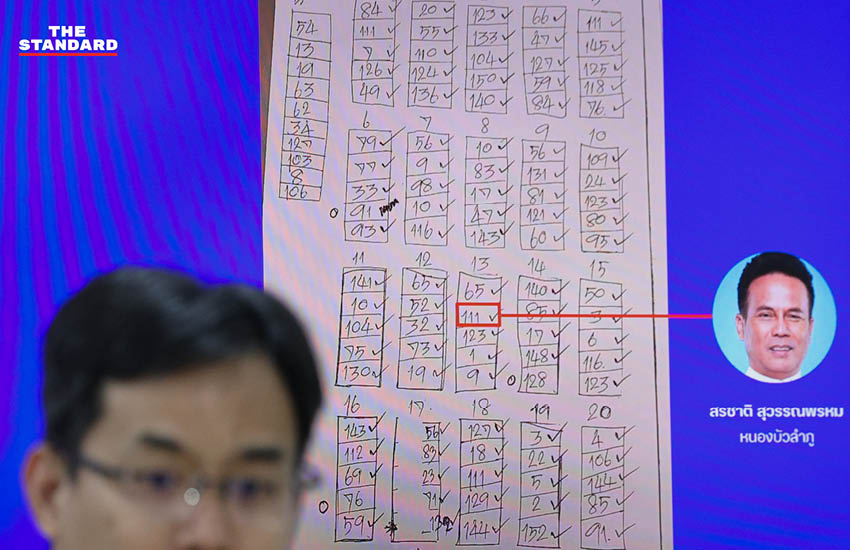 THE
STANDARD
84 ✓ 20 ✓ 123 ✓ 66 ✓ 111 ✓
54 111 ✓ 55 ✓ 133 ✓ 47 ✓ 145 ✓
13 7 ✓ 110 ✓ 104 ✓ 127 ✓ 125 ✓
19 126 ✓ 124 ✓ 150 ✓ 59 ✓ 118 ✓
63 49 ✓ 136 ✓ 140 ✓ 84 ✓ 76. ✓
62
34
127
103
8
106
6 7 8 9 10
79 ✓ 56 ✓ 10 ✓ 56 ✓ 109 ✓
77 ✓ 9 ✓ 83 ✓ 131 ✓ 24 ✓
33 ✓ 98 ✓ 17 ✓ 81 ✓ 123 ✓
91 10 ✓ 47 ✓ 121 ✓ 80 ✓
93 ✓ 116 ✓ 143 ✓ 60 ✓ 95 ✓
11 12 13 14 15
141 ✓ 65 ✓ 65 ✓ 140 ✓ 50 ✓
10 ✓ 52 ✓ 111 ✓ 85 ✓ 3 ✓
104 ✓ 32 ✓ 123 ✓ 17 ✓ 6 ✓
75 ✓ 73 ✓ 1 ✓ 148 ✓ 116. ✓
130 ✓ 19 ✓ 9 ✓ 128 123 ✓
สรชาติ สุวรรณพรหม
หนองบัวลำภู
16 17. 18 19 20
143 ✓ 56 ✓ 127 ✓ 3 ✓ 4 ✓
112 ✓ 83 ✓ 18 ✓ 22 ✓ 106 ✓
69 ✓ 23 ✓ 111 ✓ 5 ✓ 144 ✓
76 71 ✓ 129 ✓ 2 ✓ 85 ✓
59 ✓ 144 ✓ 152 ✓ 91. ✓